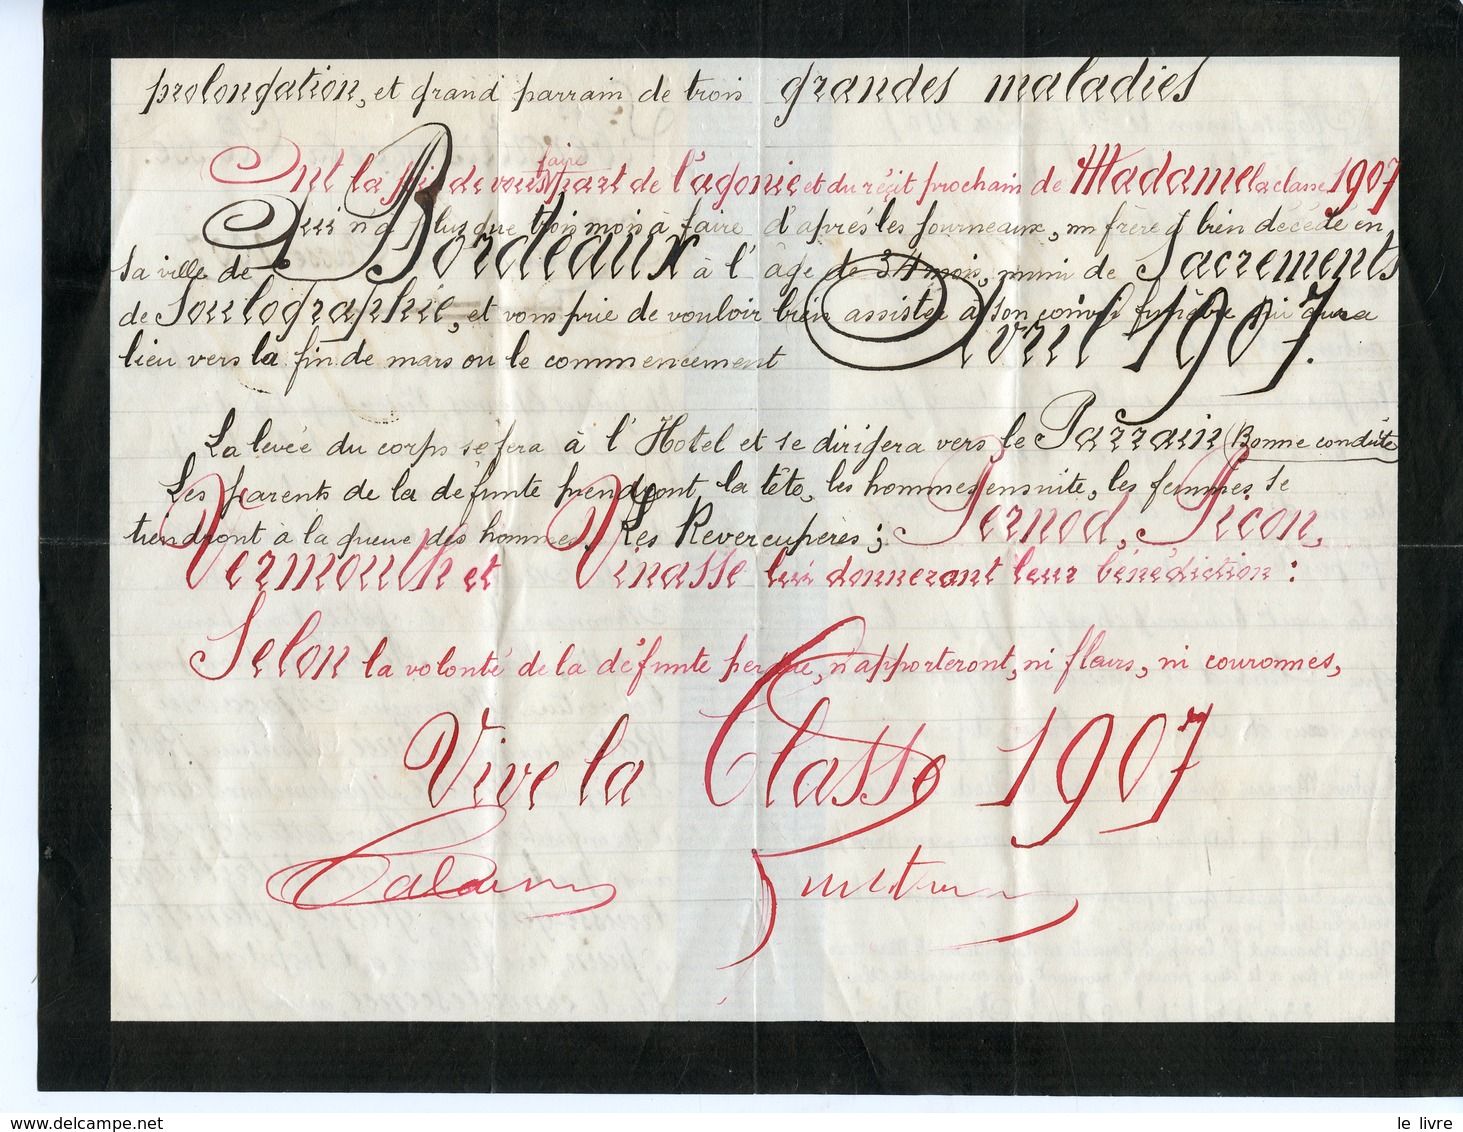 prolongation, et grand parrain de trois grandes maladies
Ont la de vous faire part de l'agonie et du récit prochain de Madame la classe 1907
Qui n'a plus que trois mois à faire d'après les fourneaux, bien décédé en
sa ville de Bordeaux à l'âge de 34 mois, muni de Sacrements
de Soulographie, et vous prie de vouloir bien assister à son convoi funèbre qui aura
lieu vers la fin de mars ou le commencement Avril 1907.
La levée du corps se fera à l'Hotel et se dirigera vers le Parrain (Bonne conduite
Les parents de la défunte prendront la tête, les hommes ensuite, les femmes se
tiendront à la queue des hommes. Les Reverenpères; Pernod, Picon,
Vermouth et Vinasse lui donneront leur bénédiction:
Selon la volonté de la défunte perdue, n'apporteront, ni fleurs, ni couronnes,
Vive la Classe 1907
le livre